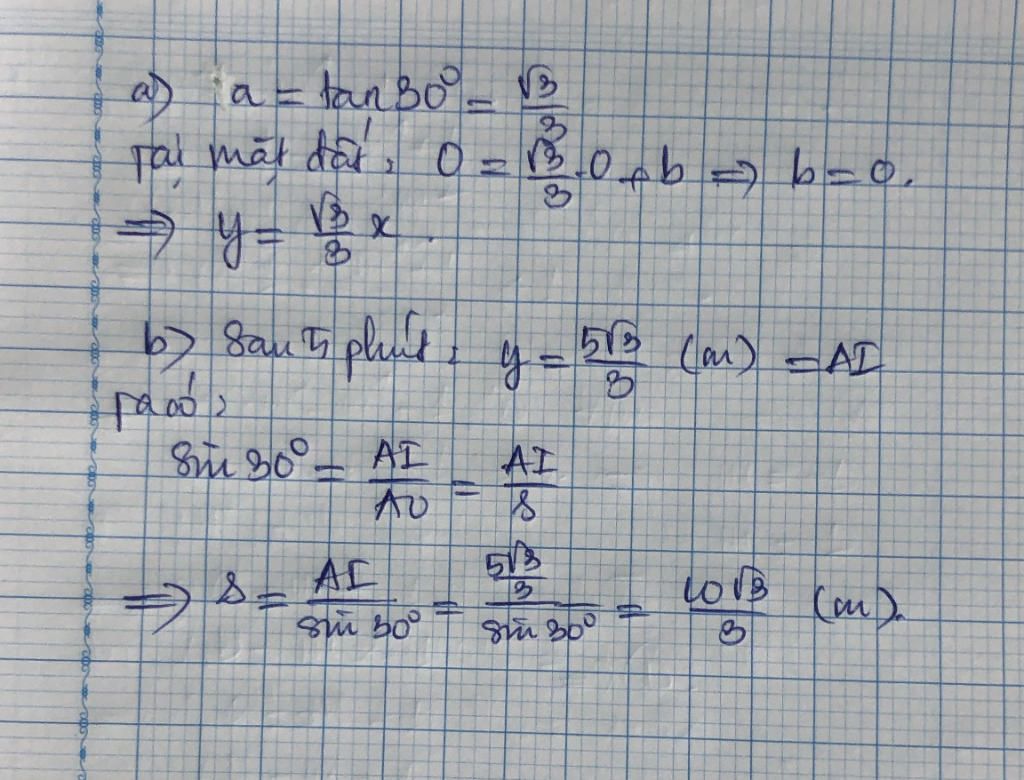 a) a = tan 30° = √3/3
Tại mặt đất: 0 = √3/3 . 0 + b ⇒ b = 0.
⇒ y = √3/3 x.
b) Sau 5 phút: y = 5√3/3 (m) = AI
Ta có:
sin 30° = AI/AO = AI/s
⇒ s = AI/sin 30° = (5√3/3)/sin 30° = 10√3/3 (m).